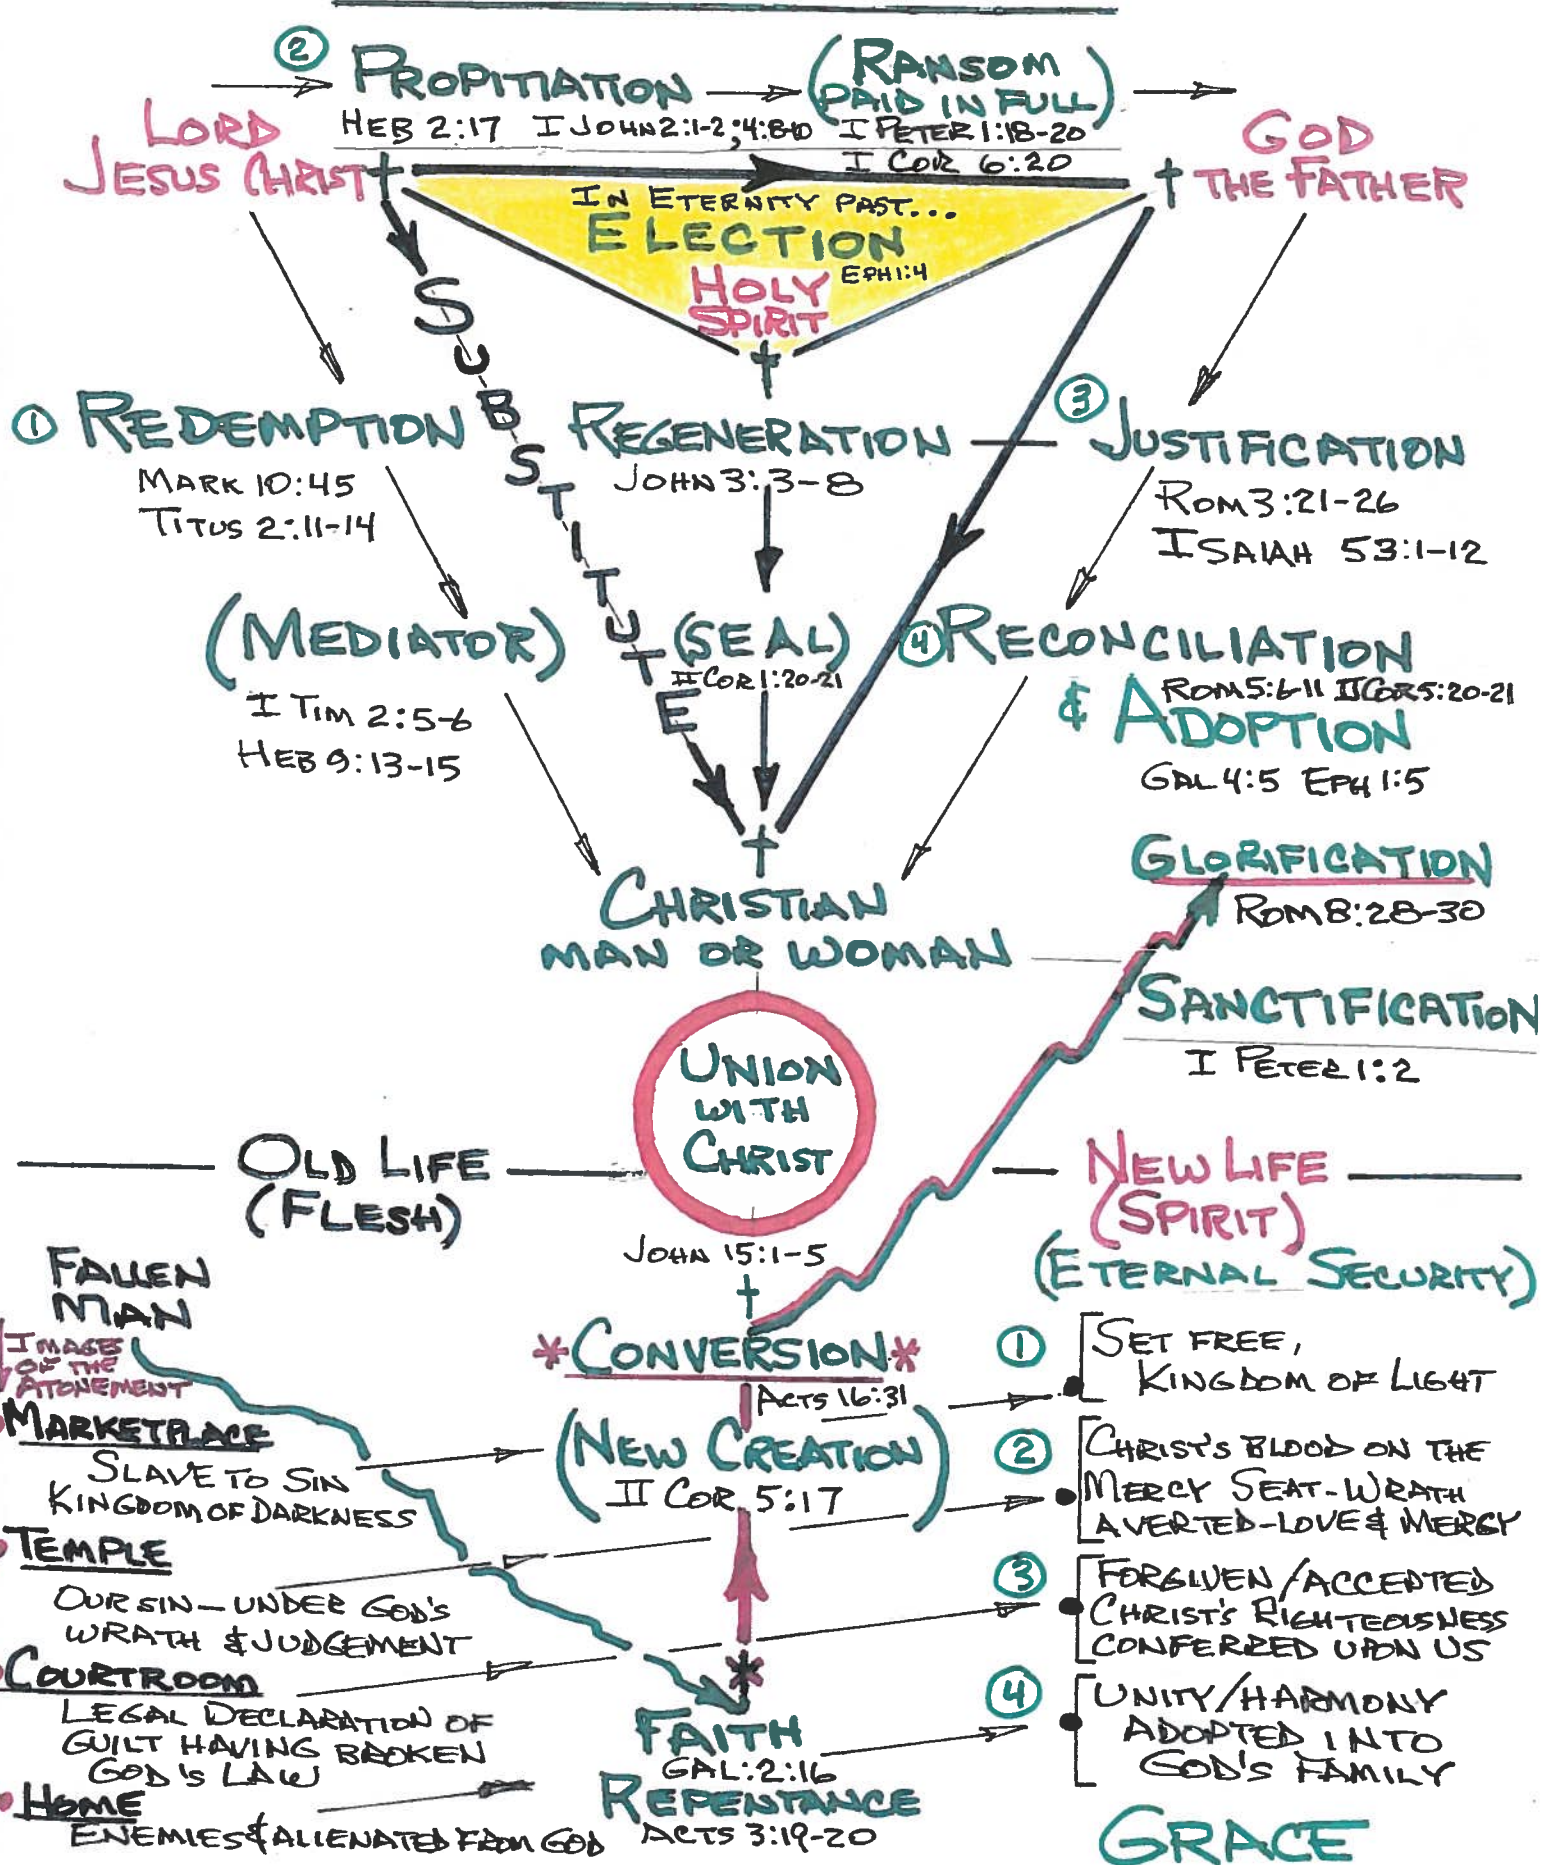 ② PROPITIATION
(RANSOM
PAID IN FULL)
HEB 2:17 I JOHN 2:1-2; 4:8-10 I PETER 1:18-20
I COR 6:20
LORD
JESUS CHRIST
GOD
THE FATHER
IN ETERNITY PAST...
ELECTION
EPH 1:4
HOLY
SPIRIT
SUBSTITUTE
① REDEMPTION
MARK 10:45
TITUS 2:11-14
REGENERATION
JOHN 3:3-8
③ JUSTIFICATION
ROM 3:21-26
ISAIAH 53:1-12
(MEDIATOR)
I TIM 2:5-6
HEB 9:13-15
(SEAL)
II COR 1:20-21
④ RECONCILIATION
ROM 5:6-11 II COR 5:20-21
& ADOPTION
GAL 4:5 EPH 1:5
CHRISTIAN
MAN OR WOMAN
GLORIFICATION
ROM 8:28-30
SANCTIFICATION
I PETER 1:2
UNION
WITH
CHRIST
JOHN 15:1-5
OLD LIFE
(FLESH)
NEW LIFE
(SPIRIT)
(ETERNAL SECURITY)
FALLEN
MAN
IMAGES
OF THE
ATONEMENT
*CONVERSION*
ACTS 16:31
(NEW CREATION)
II COR. 5:17
MARKETPLACE
SLAVE TO SIN
KINGDOM OF DARKNESS
TEMPLE
OUR SIN - UNDER GOD'S
WRATH & JUDGEMENT
COURTROOM
LEGAL DECLARATION OF
GUILT HAVING BROKEN
GOD'S LAW
HOME
ENEMIES & ALIENATED FROM GOD
*
FAITH
GAL: 2:16
REPENTANCE
ACTS 3:19-20
① SET FREE,
KINGDOM OF LIGHT
② CHRIST'S BLOOD ON THE
MERCY SEAT - WRATH
AVERTED - LOVE & MERCY
③ FORGIVEN / ACCEPTED
CHRIST'S RIGHTEOUSNESS
CONFERRED UPON US
④ UNITY / HARMONY
ADOPTED INTO
GOD'S FAMILY
GRACE